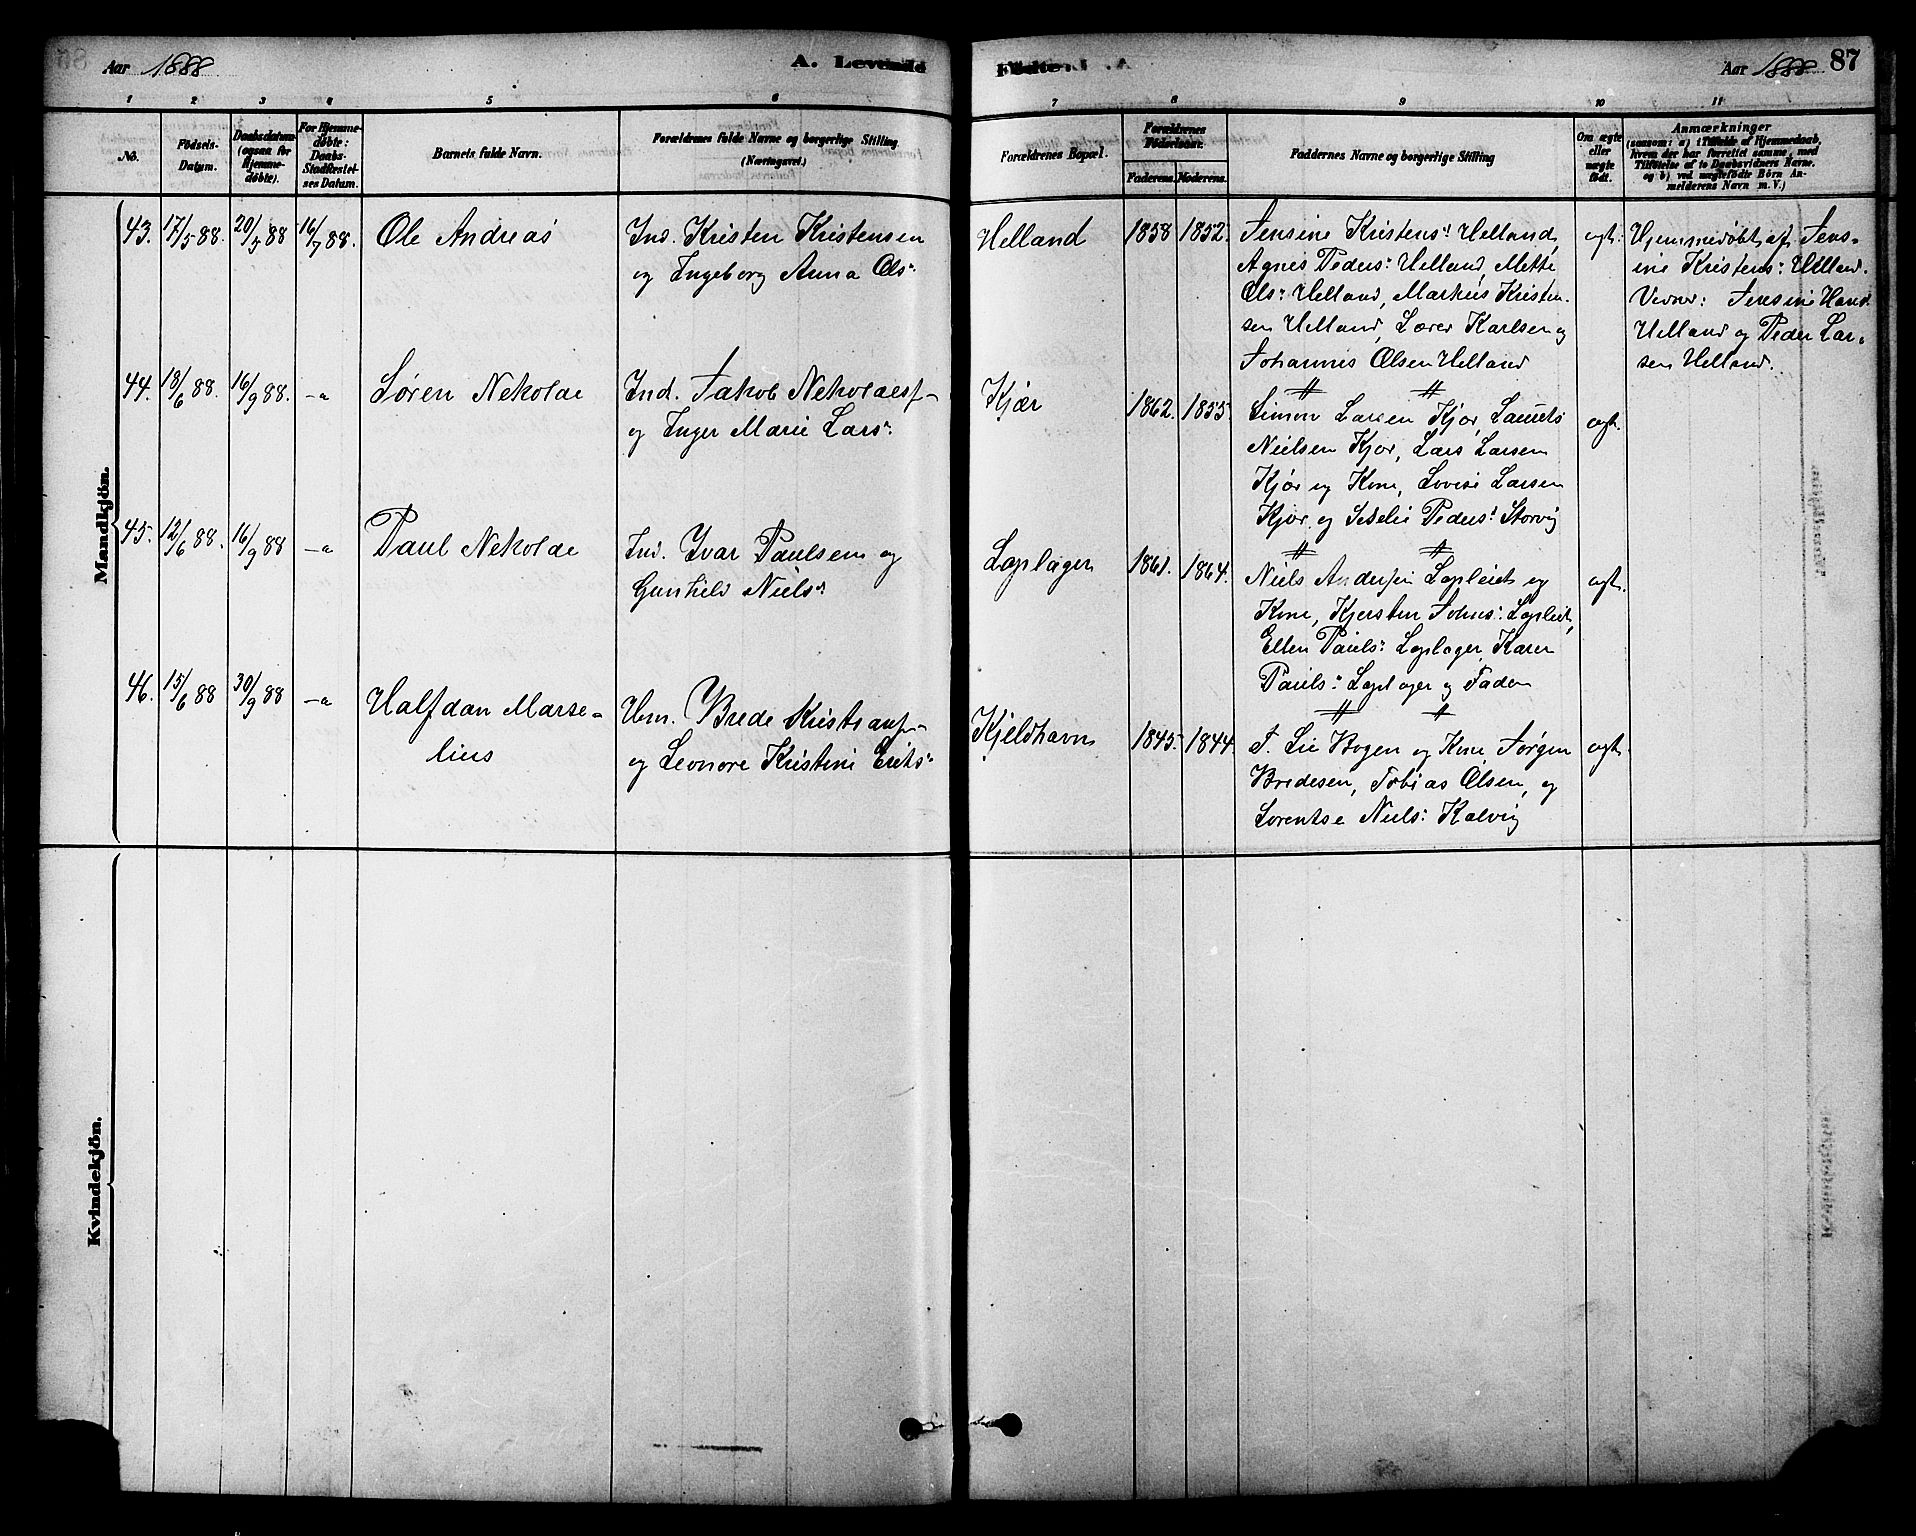 Aar 1888
A. Levende
Födte.
Aar 1888
87
1 2 3 4 5 6 7 8 9 10 11
No.
Födsels-
Datum.
Daabsdatum
(ogsaa for
Hjemme-
döbte).
For Hjemme-
döbte:
Daabs-
Stadfæstel-
ses Datum.
Barnets fulde Navn.
Forældrenes fulde Navne og borgerlige Stilling
(Næringsvei.)
Forældrenes Bopæl.
Forældrenes
Födselsaar.
Faderens. Moderens.
Faddernes Navne og borgerlige Stilling
Om ægte
eller
uægte
födt.
Anmærkninger
(saasom: a) i Tilfælde af Hjemmedaab,
hvem der har forrettet samme, med
Tilföielse af to Daabsvidners Navne.
og b) ved uægtefödte Börn An-
melderens Navn m. V.)
Mandkjön.
43. 17/5 88. 20/5 88 16/9 88. Ole Andreas
Ind. Kristen Kristensen
og Ingeborg Anna Ols:
Helland 1858 1852.
Jensine Kristens: Helland,
Agnes Peders: Helland, Mette
Ols: Helland, Markus Kristen-
sen Helland, Lærer Karlsen og
Johannes Olsen Helland
ægt:
Hjemmedøbt af Jens-
ine Kristens: Helland.
Vidner: Jensine Hans:
Helland og Peder Lar-
sen Helland.
44. 18/6 88. 16/9 88. -a Søren Nekolai
Ind. Jakob Nekolaes-
og Inger Marie Lars:
Kjær 1862. 1855.
Simon Larsen Kjør, Laurits
Nielsen Kjør, Lars Larsen
Kjør og Kone, Lovise Larsen
Kjør og Peders: Storvig
ægt.
45. 12/6 88. 16/9 88 -a Paul Nekolai
Ind. Ivar Paulsen og
Gunhild Niels:
Laplager 1861. 1864.
Niels Andersen Lapleiet og
Kone, Kjersten Johns: Lapleiet,
Ellen Pauls: Laplager, Karen
Pauls: Laplager og Faderen
ægt.
46. 15/6 88 30/9 88 -a Halfdan Marse-
lius
Hm. Brede Kristians-
og Leonore Kristine Eriks:
Kjeldhavn 1845. 1844.
J. Lie Bogen og Kone, Jørgen
Bredesen, Tobias Olsen, og
Lorentse Niels: Kalvig
ægt.
Kvindekjön.